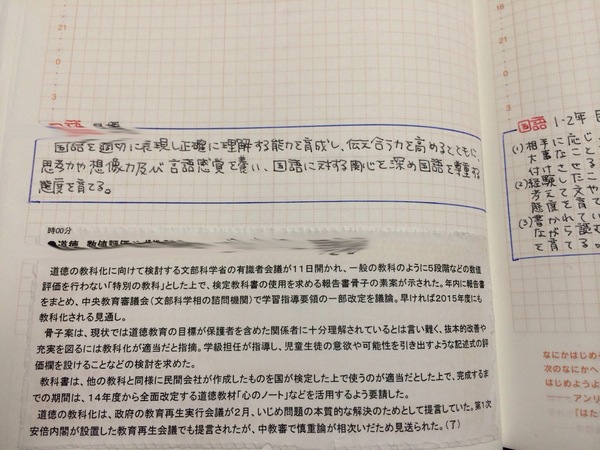 18
21
0
3
国語 目標
国語を適切に表現し正確に理解する能力を育成し、伝え合う力を高めるとともに、
思考力や想像力及び言語感覚を養い、国語に対する関心を深め国語を尊重する
態度を育てる。
時00分
●道徳、数値評価
道徳の教科化に向けて検討する文部科学省の有識者会議が11日開かれ、一般の教科のように5段階などの数値
評価を行わない「特別の教科」とした上で、検定教科書の使用を求める報告書骨子の素案が示された。年内に報告書
をまとめ、中央教育審議会(文部科学相の諮問機関)で学習指導要領の一部改定を議論。早ければ2015年度にも
教科化される見通し。
骨子案は、現状では道徳教育の目標が保護者を含めた関係者に十分理解されているとは言い難く、抜本的改善や
充実を図るには教科化が適当だと指摘。学級担任が指導し、児童生徒の意欲や可能性を引き出すような記述式の評
価欄を設けることなどの検討を求めた。
教科書は、他の教科と同様に民間会社が作成したものを国が検定した上で使うのが適当だとした上で、完成するま
での期間は、14年度から全面改定する道徳教材「心のノート」などを活用するよう要請した。
道徳の教科化は、政府の教育再生実行会議が2月、いじめ問題の本質的な解決のためとして提言していた。第1次
安倍内閣が設置した教育再生会議でも提言されたが、中教審で慎重論が相次いだため見送られた。(了)
18
21
0
3
国語 1-2年
(1)相手に応じ
大事なこと
付けさせる
(2)経験したこ
考えて文や
態度を育て
(3)書かれてい
ながら読む
を育てる。
なにかはじめ
次のなにかへ
はじめようよ
── アンリ
『はた